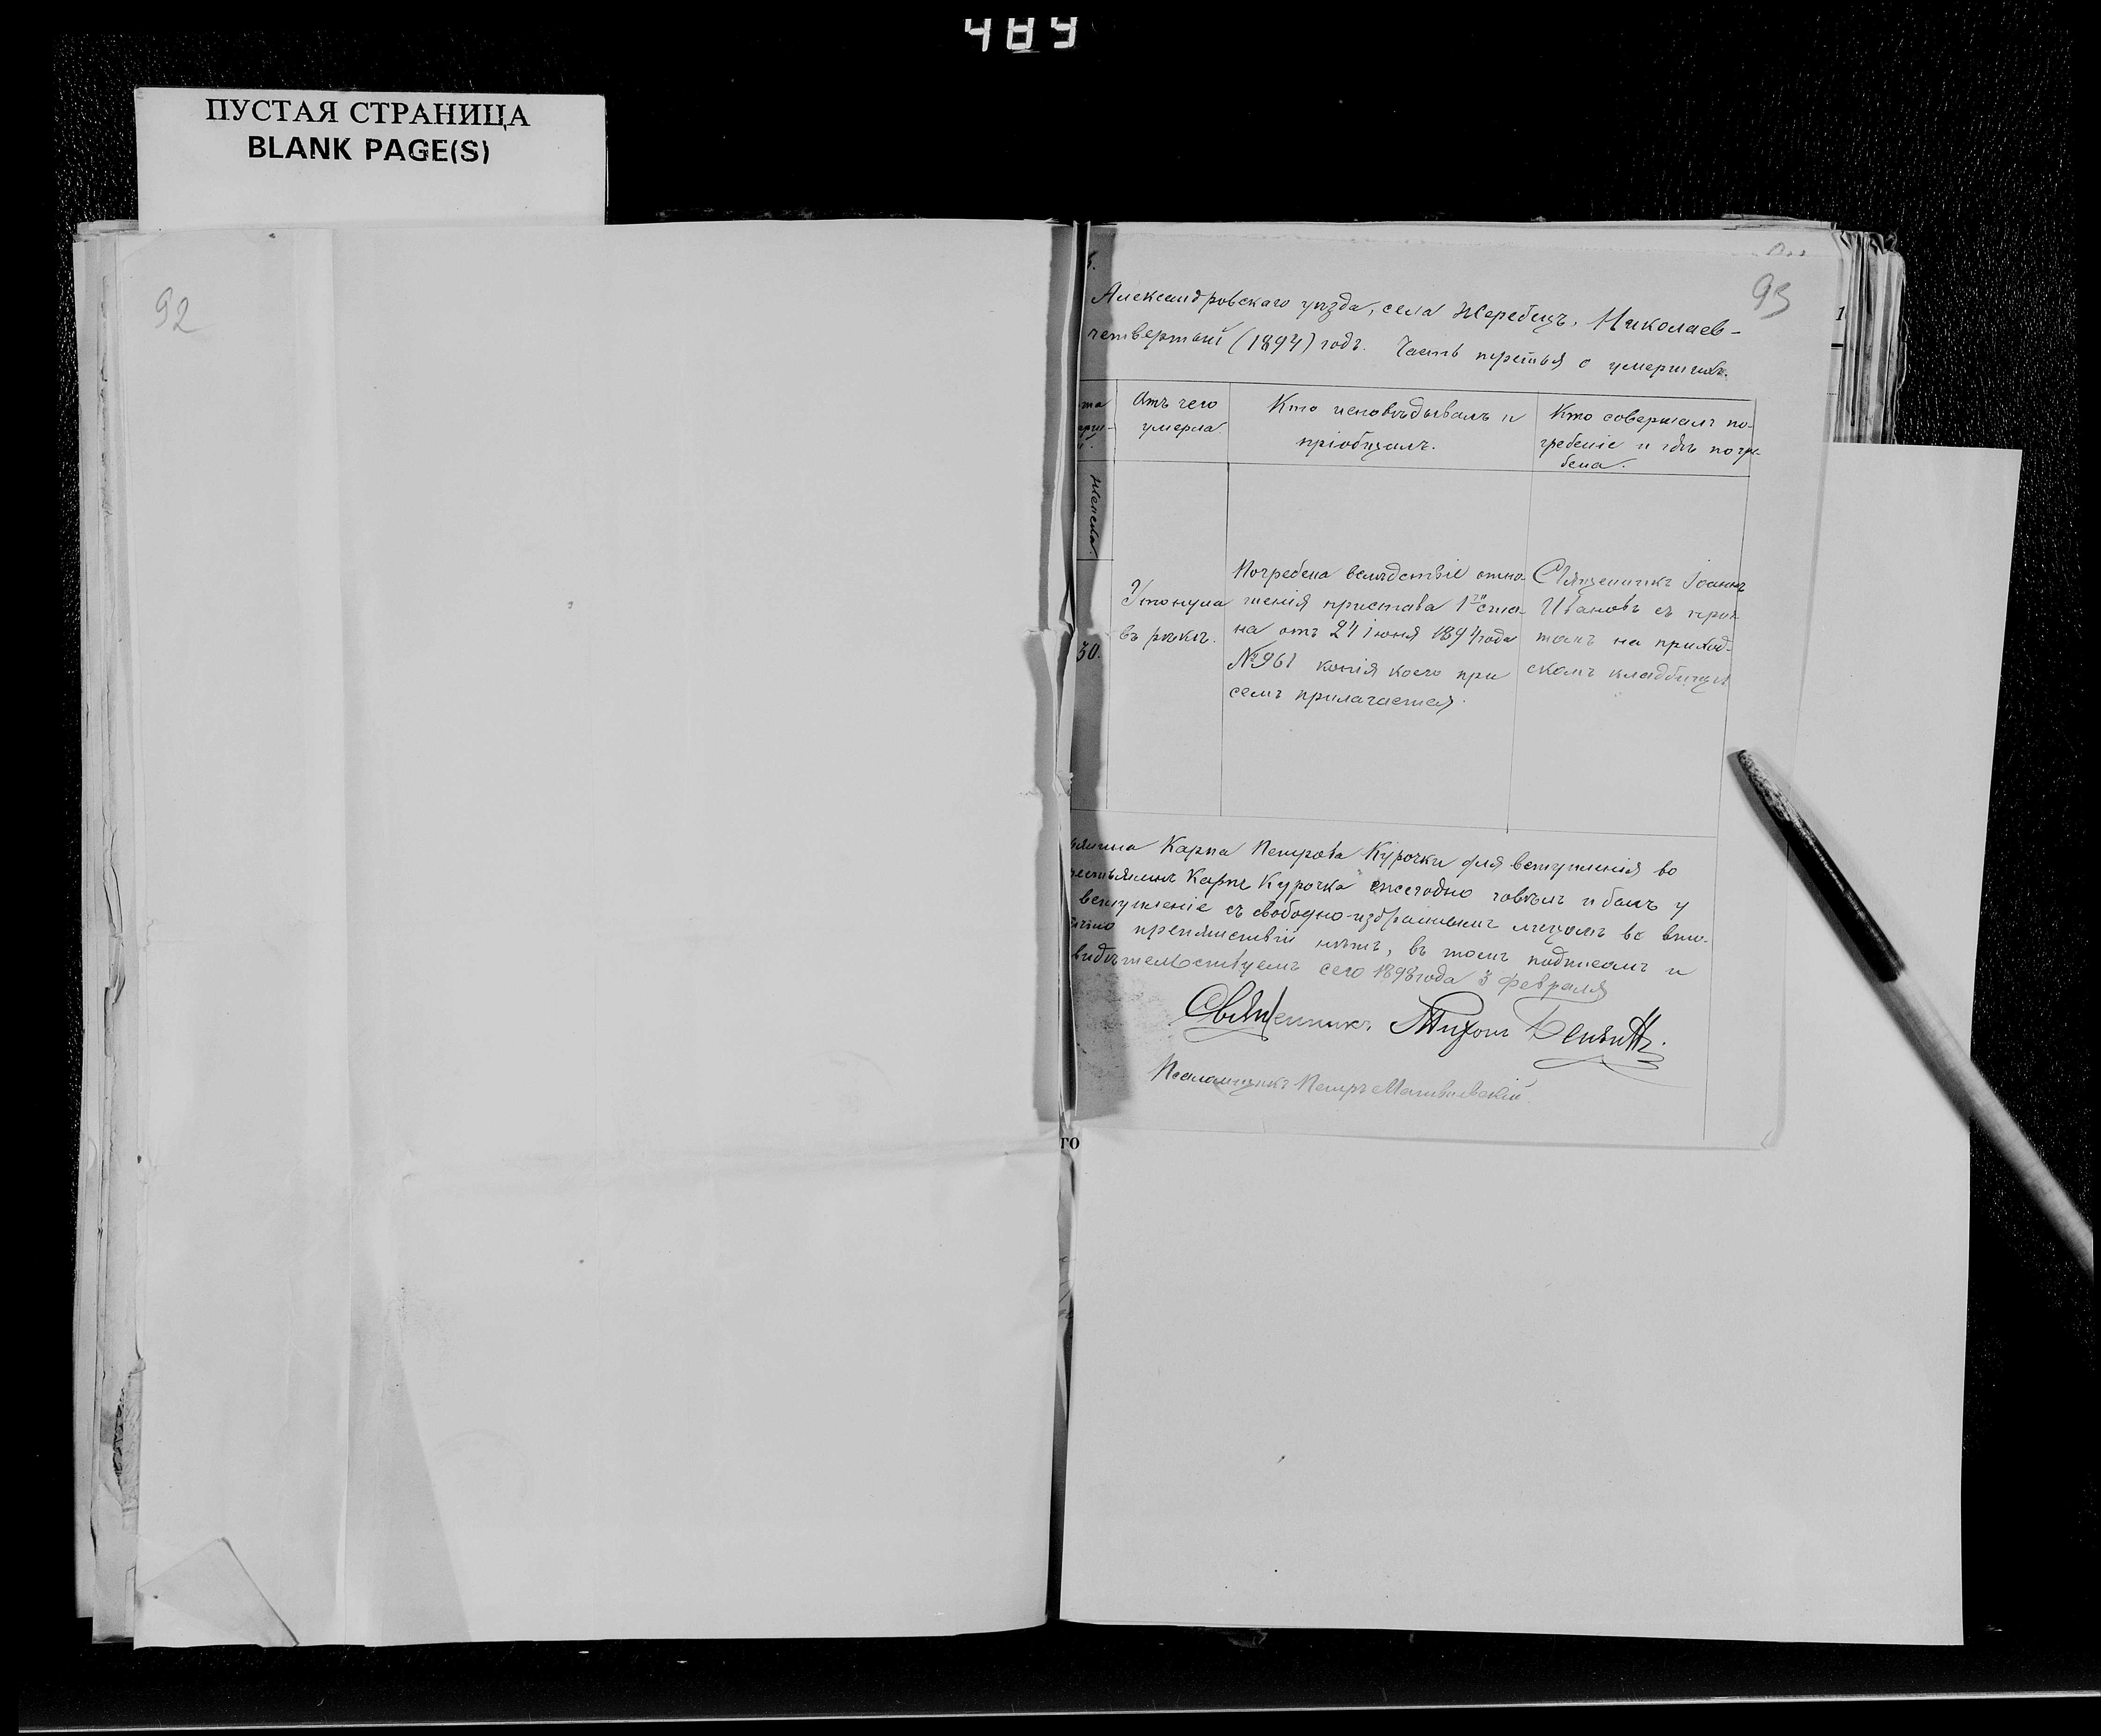 489
ПУСТАЯ СТРАНИЦА
BLANK PAGE(S)
92
93
1
Александровскаго уѣзда, села Жеребецъ, Николаев-
четвертый (1894) годъ. Часть третья о умершихъ.
Отъ чего
умерла.
Кто исповѣдывалъ и
пріобщалъ.
Кто совершалъ по-
гребеніе и гдѣ погре-
бена.
женска.
30.
Утонула
въ рѣкѣ.
Погребена вслѣдствіе отно-
шенія пристава 1го ста-
на отъ 24 іюня 1894 года
№961 копія коего при
семъ прилагается.
Священникъ Іоаннъ
Ивановъ съ прич-
томъ на приход-
скомъ кладбищѣ
Карпа Петрова Курочки для вступленія во
Карпъ Курочка ежегодно говѣлъ и былъ у
вступленіе съ свободно-избраннымъ лицомъ во вто-
препятствій нѣтъ, въ томъ подписомъ и
сего 1898 года 3 февраля
Священникъ Тихонъ
Псаломщикъ Петръ
го